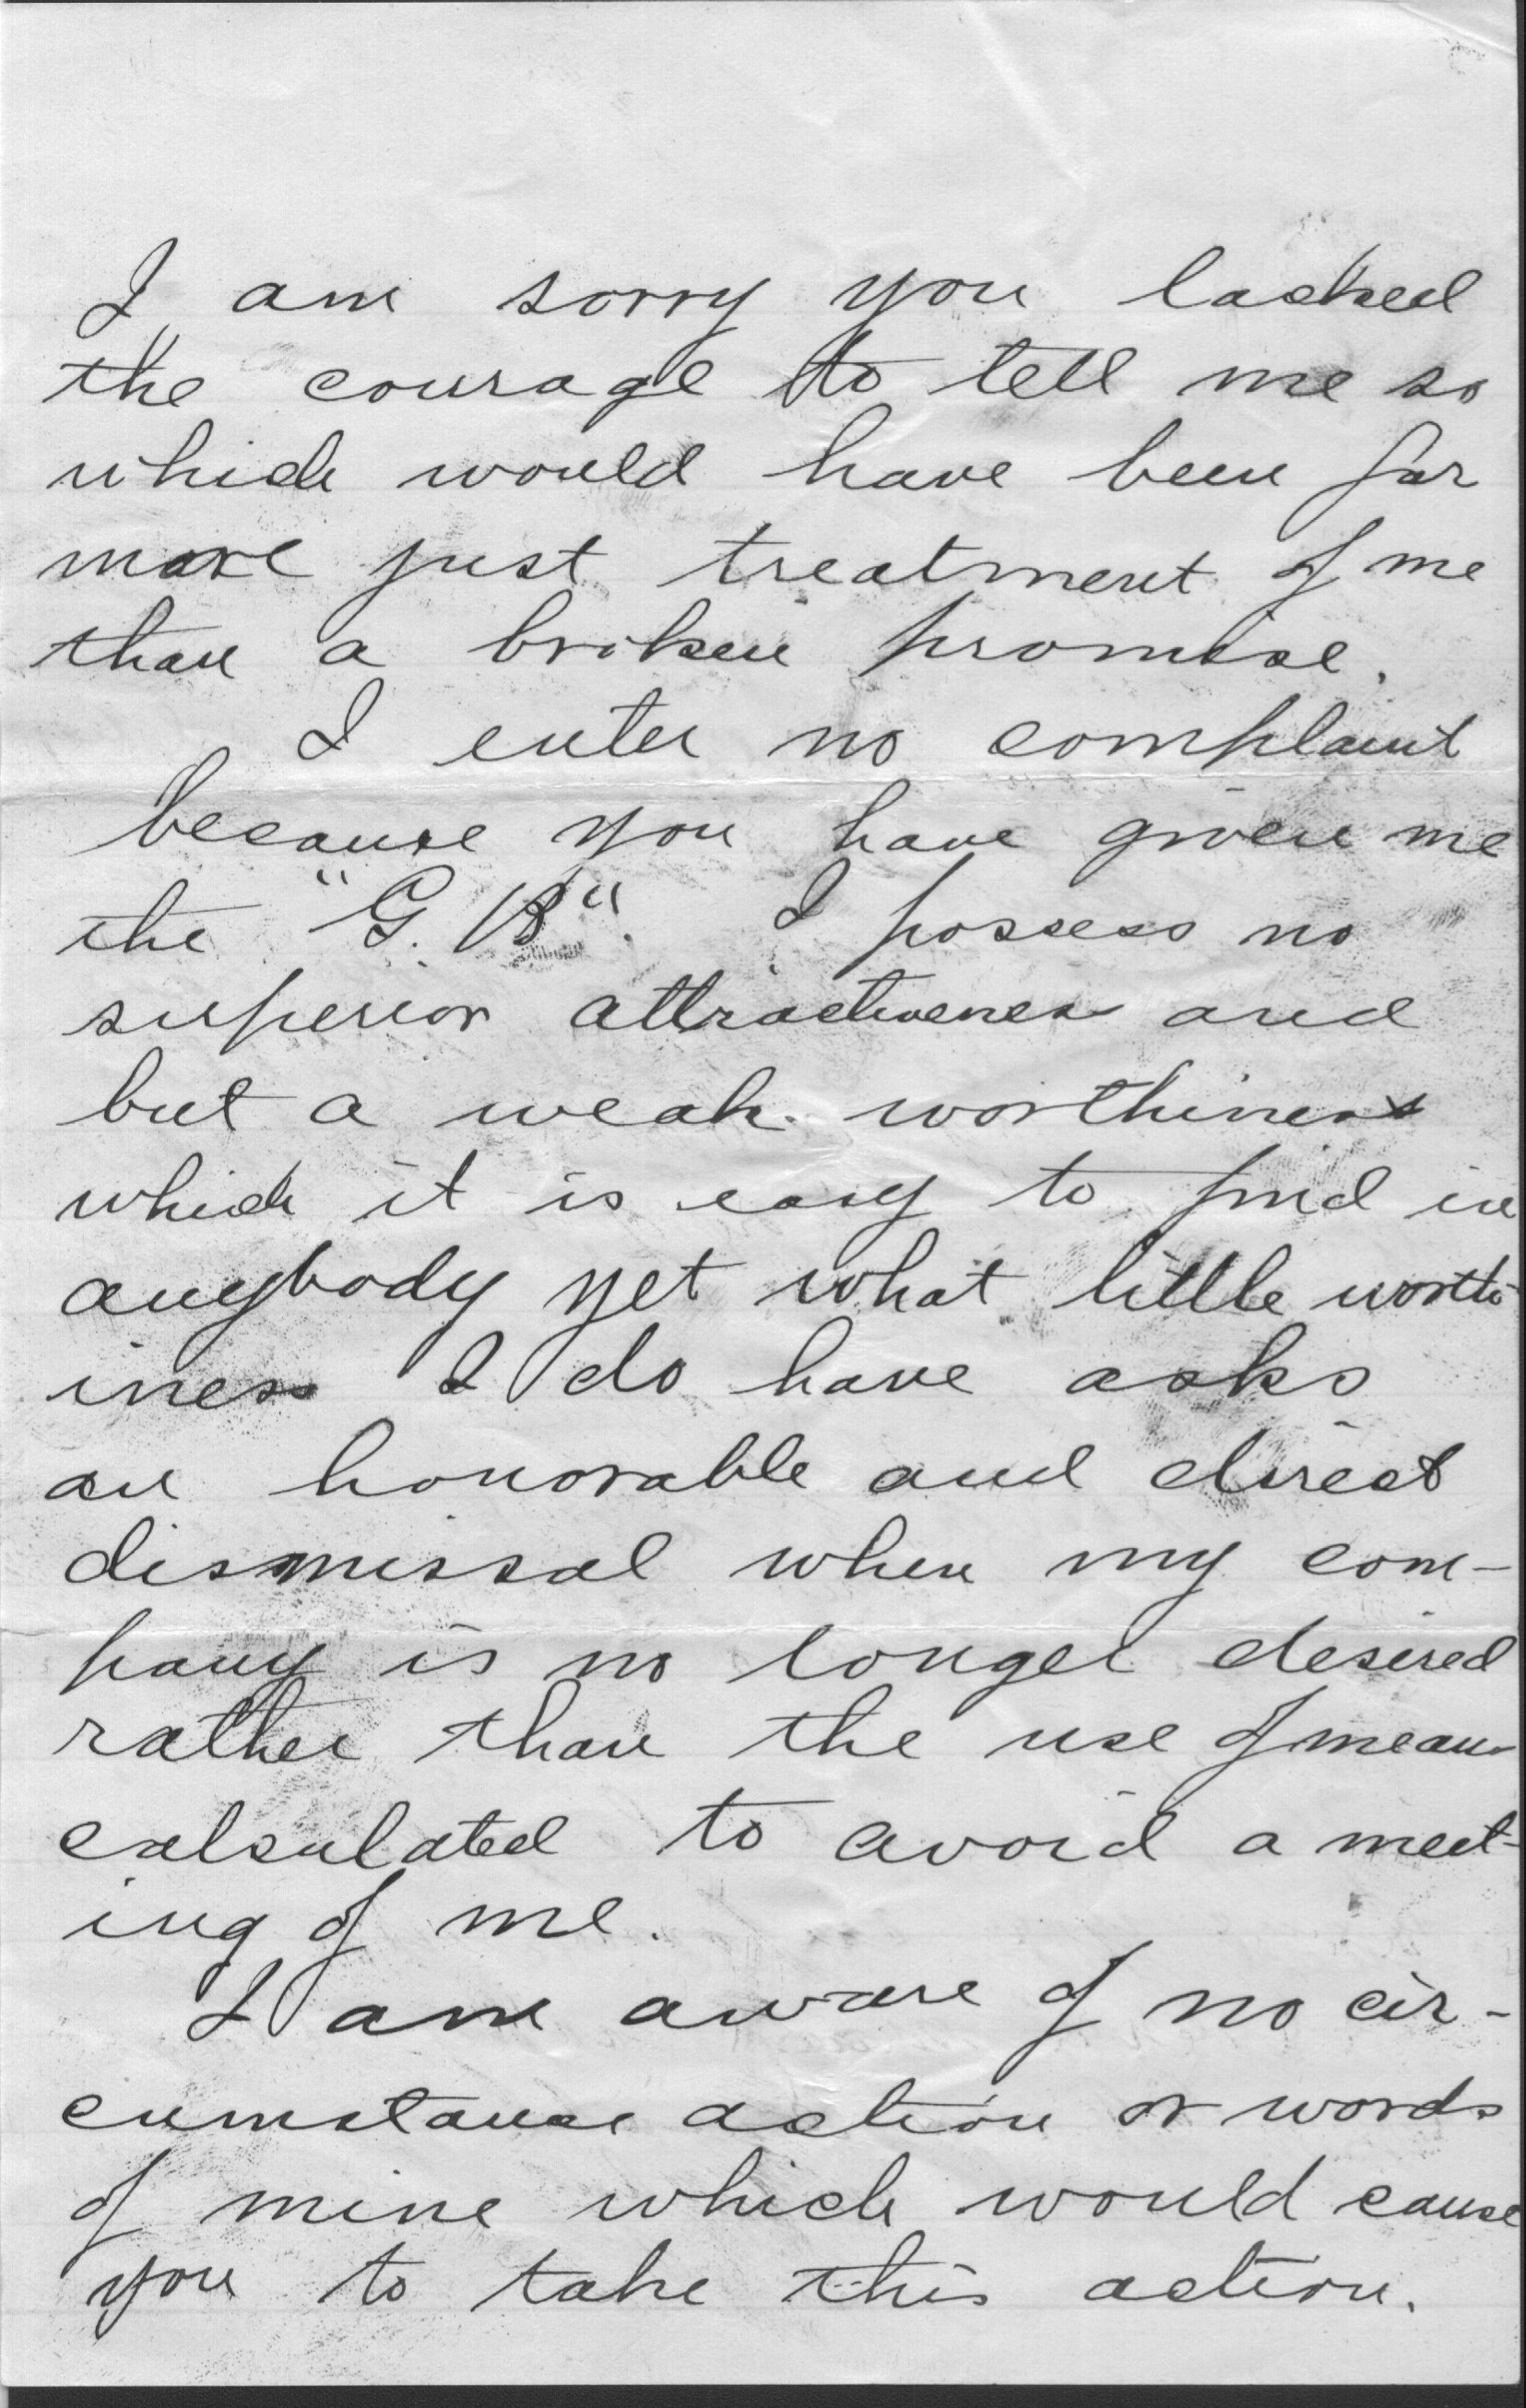 I am sorry you lacked
the courage to tell me so
which would have been far
more just treatment of me
than a broken promise.
I enter no complaint
because you have given me
the "G. B". I possess no
superior attractiveness and
but a weak worthiness
which it is easy to find in
anybody yet what little worth-
iness I do have asks
an honorable and direct
dismissal when my com-
pany is no longer desired
rather than the use of means
calculated to avoid a meet-
ing of me.
I am aware of no cir-
cumstance action or words
of mine which would cause
you to take this action.